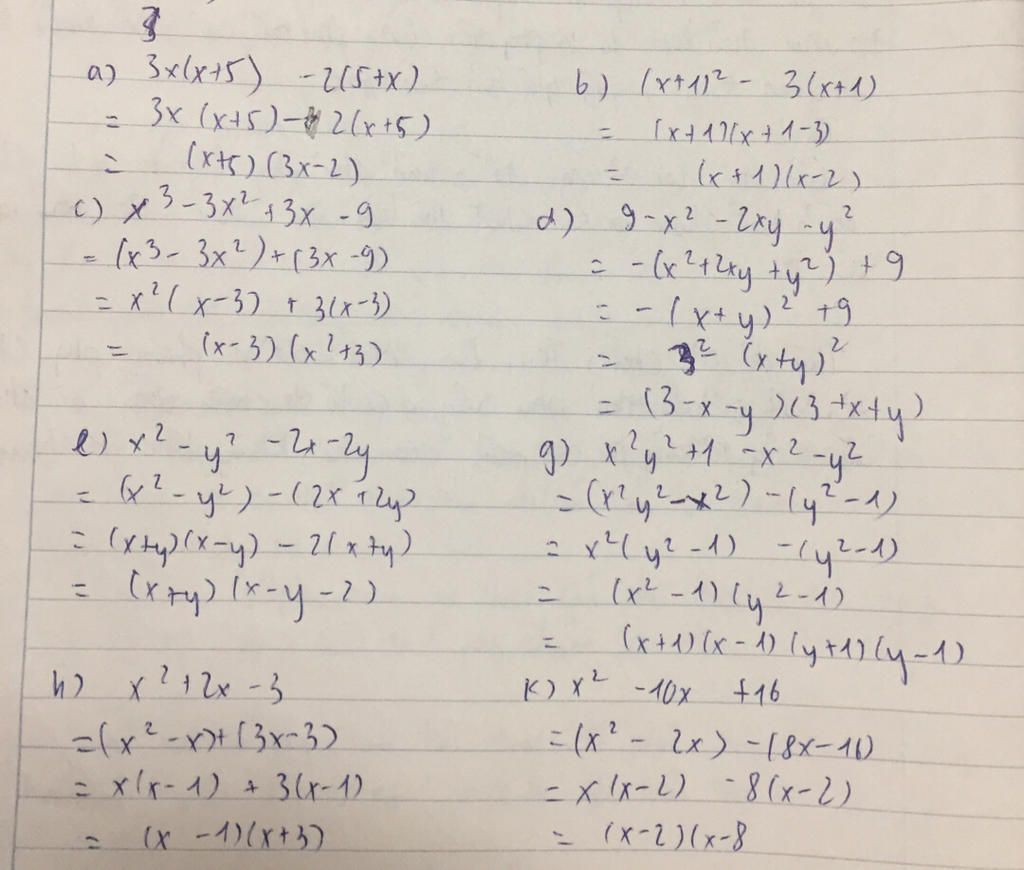 a) 3x(x+5) -2(5+x)
= 3x (x+5) - 2(x+5)
= (x+5) (3x-2)
b) (x+1)² - 3(x+1)
= (x+1)(x+1-3)
= (x+1)(x-2)
c) x³ -3x² +3x -9
= (x³ - 3x²) + (3x -9)
= x² (x-3) + 3(x-3)
= (x-3) (x²+3)
d) 9-x² -2xy -y²
= -(x²+2xy +y²) +9
= -(x+y)² +9
= 3² - (x+y)²
= (3-x-y)(3+x+y)
e) x² - y² -2x -2y
= (x² - y²) - (2x +2y)
= (x+y)(x-y) - 2(x+y)
= (x+y) (x-y-2)
g) x²y² +1 -x² -y²
= (x²y² -x²) - (y² -1)
= x²(y² -1) -(y² -1)
= (x² -1)(y² -1)
= (x+1)(x-1)(y+1)(y-1)
h) x² +2x -3
=(x² -x)+(3x-3)
= x(x-1) + 3(x-1)
= (x -1)(x+3)
k) x² -10x +16
=(x² - 2x) -(8x-16)
= x(x-2) -8(x-2)
= (x-2)(x-8